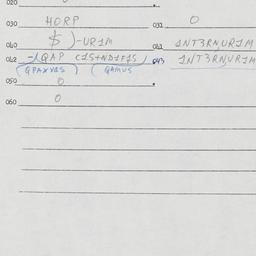 020
030 HORP 031 0
040 $ )-UR1M 041 1NT3RNUR1M
042 -1QAP C1S+ND1F1S) 043 1NT3RNUR1M
(QPAXV1S) (QAMUS
050 0
060 0